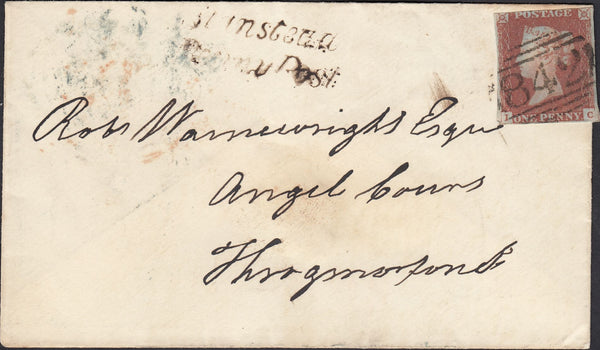 Stanstead
Penny Post
POSTAGE
842
C
ONE PENNY
Robt Wainewright Esqre
Angel Court
Throgmorton St